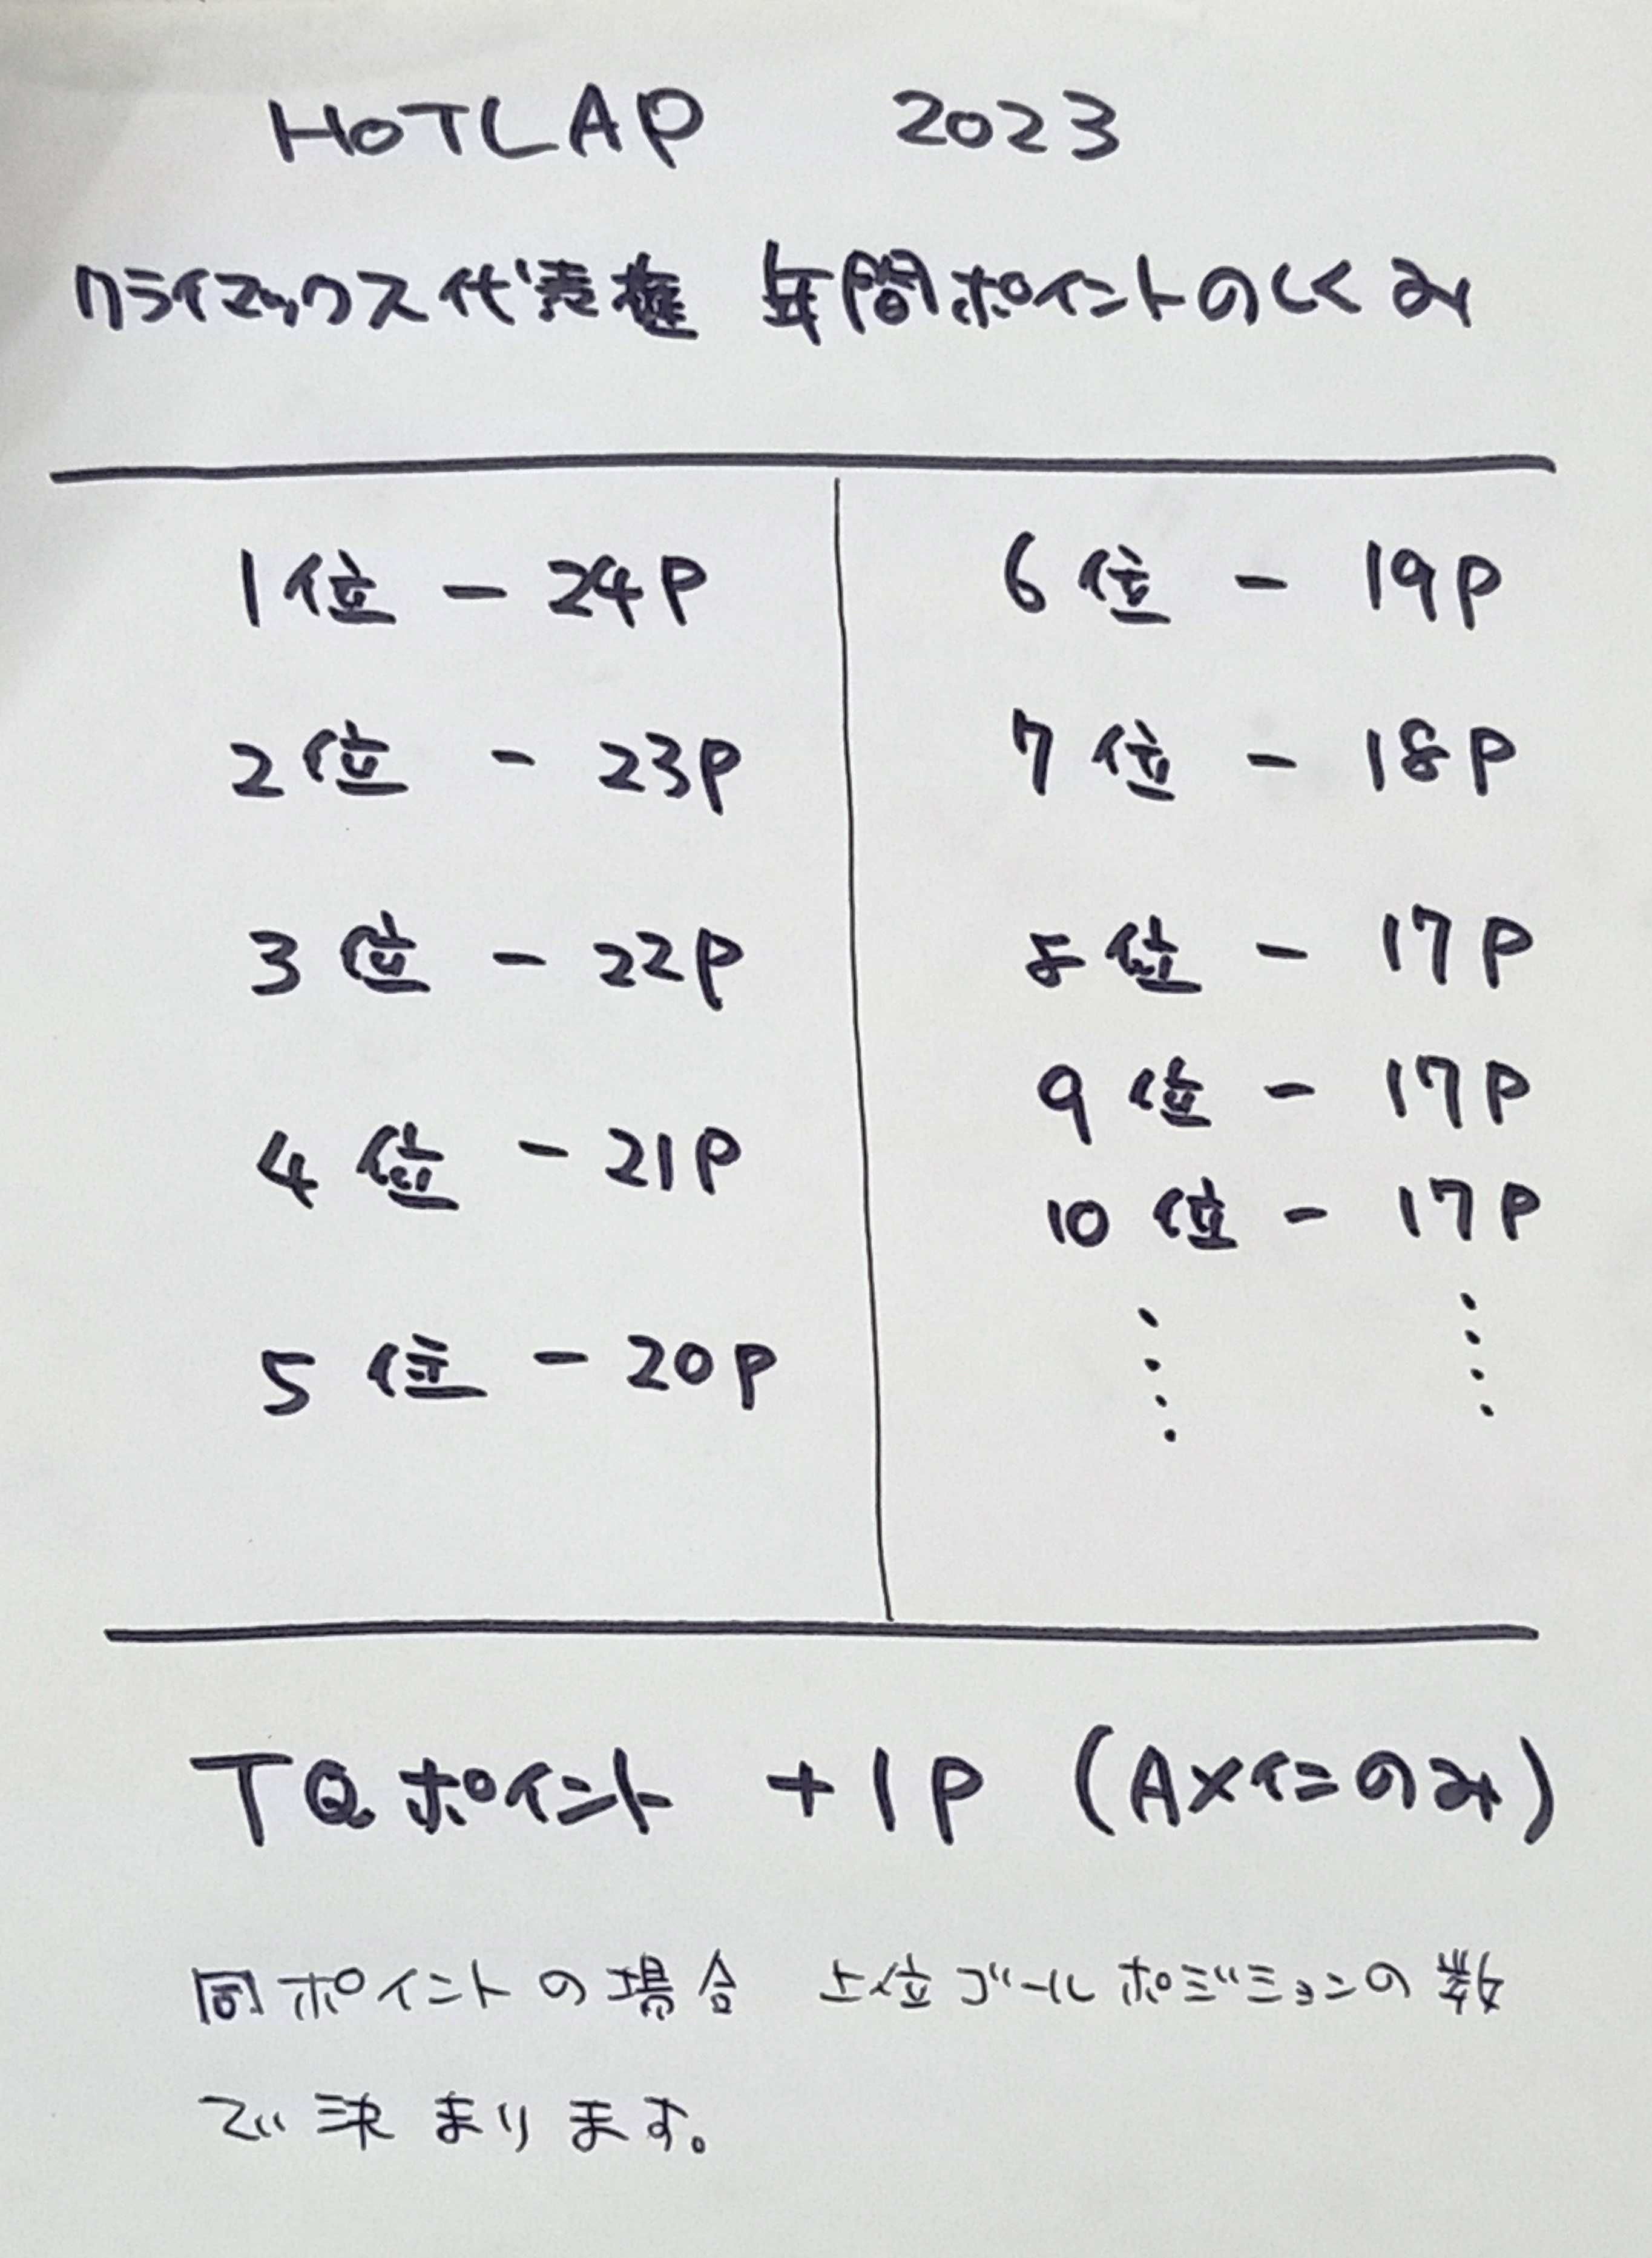 HOTLAP 2023
クライマックス代表権 年間ポイントのしくみ
1位 - 24P
2位 - 23P
3位 - 22P
4位 - 21P
5位 - 20P
6位 - 19P
7位 - 18P
8位 - 17P
9位 - 17P
10位 - 17P
TQポイント +1P (Aメインのみ)
同ポイントの場合 上位ゴールポジションの数
で決まります。